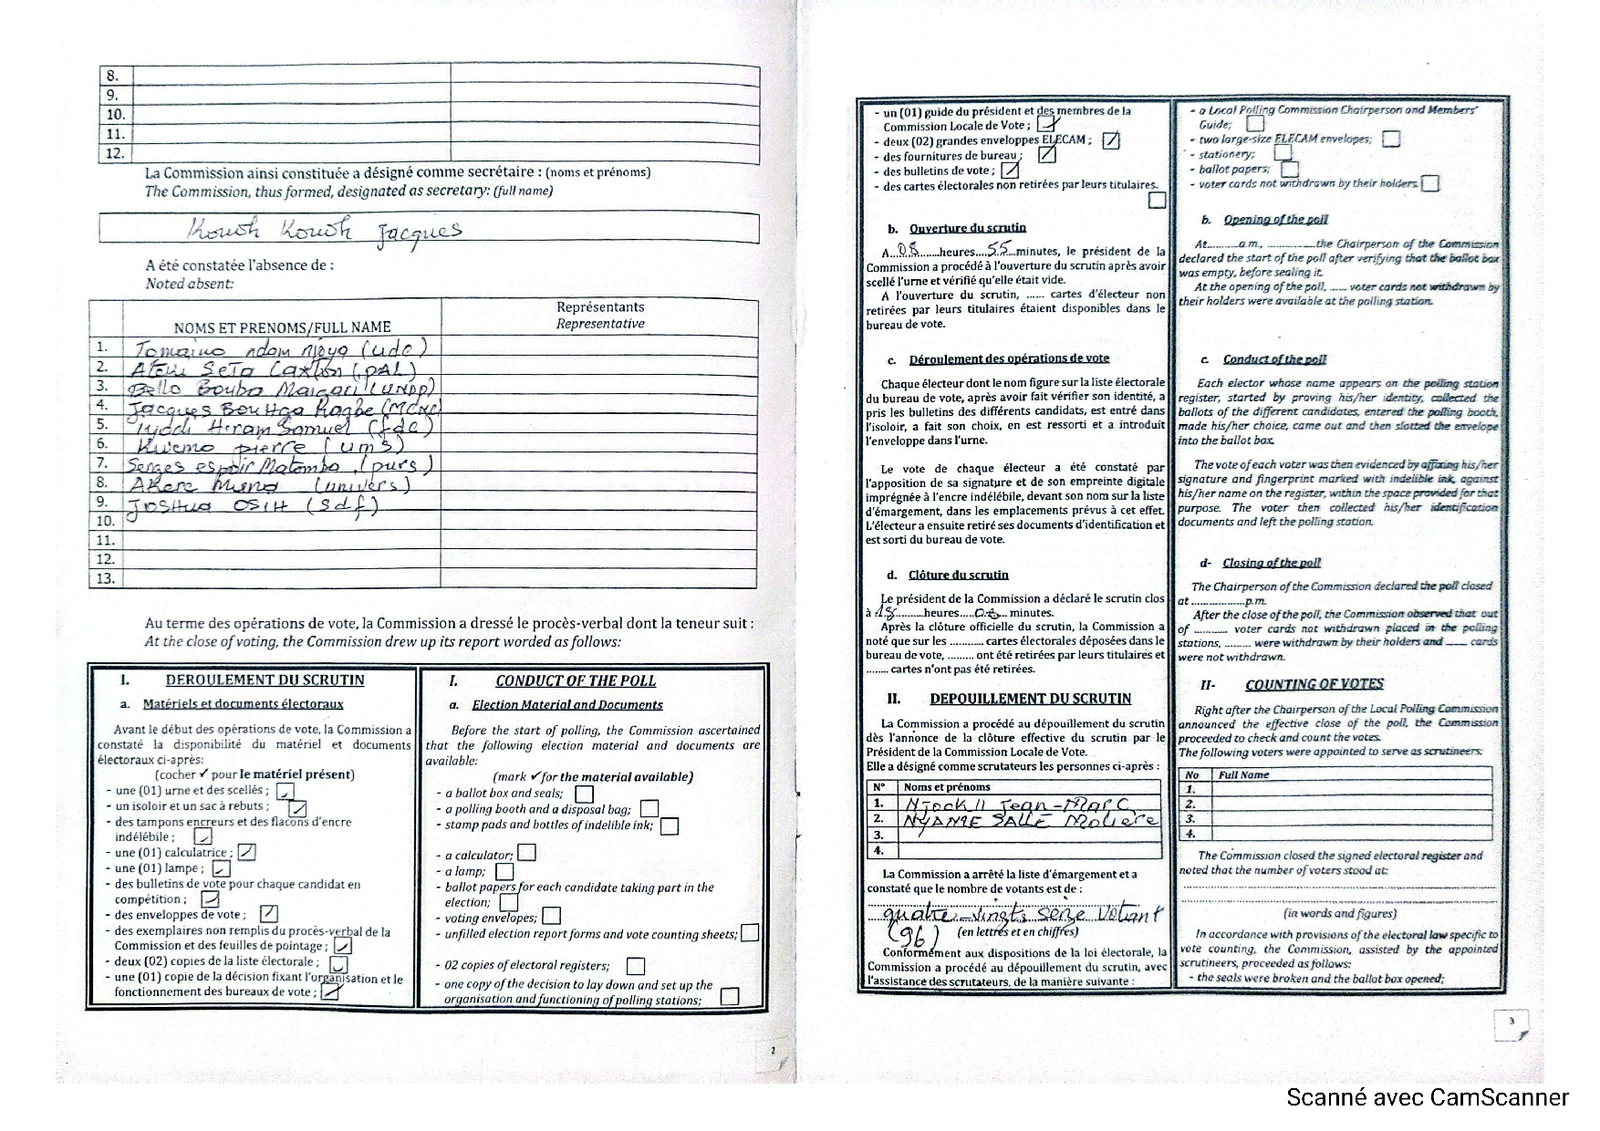 8.
9.
10.
11.
12.
La Commission ainsi constituée a désigné comme secrétaire : (noms et prénoms)
The Commission, thus formed, designated as secretary: (full name)
Kouoh Kouoh Jacques
A été constatée l'absence de :
Noted absent:
NOMS ET PRENOMS/FULL NAME
Représentants
Representative
1. Tomaino ndam njoya (udc)
2. Ateki Seta Caxton (PAL)
3. Bello Bouba Maigari (UNDP)
4. Jacques Bouhga Hagbe (MCNC)
5. Iyodi Hiram Samuel (fdc)
6. Kwemo pierre (ums)
7. Serges espoir Matomba (purs)
8. Akere Muna (univers)
9. Joshua OSIH (sdf)
10.
11.
12.
13.
Au terme des opérations de vote, la Commission a dressé le procès-verbal dont la teneur suit :
At the close of voting, the Commission drew up its report worded as follows:
I. DEROULEMENT DU SCRUTIN
a. Matériels et documents électoraux
Avant le début des opérations de vote, la Commission a
constaté la disponibilité du matériel et documents
électoraux ci-après:
(cocher ✓ pour le matériel présent)
- une (01) urne et des scellés ;
- un isoloir et un sac à rebuts ;
- des tampons encreurs et des flacons d'encre
indélébile ;
- une (01) calculatrice ;
- une (01) lampe ;
- des bulletins de vote pour chaque candidat en
compétition ;
- des enveloppes de vote ;
- des exemplaires non remplis du procès-verbal de la
Commission et des feuilles de pointage ;
- deux (02) copies de la liste électorale ;
- une (01) copie de la décision fixant l'organisation et le
fonctionnement des bureaux de vote ;
I. CONDUCT OF THE POLL
a. Election Material and Documents
Before the start of polling, the Commission ascertained
that the following election material and documents are
available:
(mark ✓ for the material available)
- a ballot box and seals;
- a polling booth and a disposal bag;
- stamp pads and bottles of indelible ink;
- a calculator;
- a lamp;
- ballot papers for each candidate taking part in the
election;
- voting envelopes;
- unfilled election report forms and vote counting sheets;
- 02 copies of electoral registers;
- one copy of the decision to lay down and set up the
organisation and functioning of polling stations;
2
- un (01) guide du président et des membres de la
Commission Locale de Vote ;
- deux (02) grandes enveloppes ELECAM ;
- des fournitures de bureau ;
- des bulletins de vote ;
- des cartes électorales non retirées par leurs titulaires.
b. Ouverture du scrutin
A 08 heures 55 minutes, le président de la
Commission a procédé à l'ouverture du scrutin après avoir
scellé l'urne et vérifié qu'elle était vide.
A l'ouverture du scrutin, ...... cartes d'électeur non
retirées par leurs titulaires étaient disponibles dans le
bureau de vote.
c. Déroulement des opérations de vote
Chaque électeur dont le nom figure sur la liste électorale
du bureau de vote, après avoir fait vérifier son identité, a
pris les bulletins des différents candidats, est entré dans
l'isoloir, a fait son choix, en est ressorti et a introduit
l'enveloppe dans l'urne.
Le vote de chaque électeur a été constaté par
l'apposition de sa signature et de son empreinte digitale
imprégnée à l'encre indélébile, devant son nom sur la liste
d'émargement, dans les emplacements prévus à cet effet.
L'électeur a ensuite retiré ses documents d'identification et
est sorti du bureau de vote.
d. Clôture du scrutin
Le président de la Commission a déclaré le scrutin clos
à 18 heures minutes.
Après la clôture officielle du scrutin, la Commission a
noté que sur les ........... cartes électorales déposées dans le
bureau de vote, ......... ont été retirées par leurs titulaires et
........ cartes n'ont pas été retirées.
II. DEPOUILLEMENT DU SCRUTIN
La Commission a procédé au dépouillement du scrutin
dès l'annonce de la clôture effective du scrutin par le
Président de la Commission Locale de Vote.
Elle a désigné comme scrutateurs les personnes ci-après :
N° Noms et prénoms
1. Njock II Jean-Marc
2. NYAME SALLE Moliere
3.
4.
La Commission a arrêté la liste d'émargement et a
constaté que le nombre de votants est de :
quatre-vingts seize votant
(96) (en lettres et en chiffres)
Conformément aux dispositions de la loi électorale, la
Commission a procédé au dépouillement du scrutin, avec
l'assistance des scrutateurs, de la manière suivante :
- a Local Polling Commission Chairperson and Members'
Guide;
- two large-size ELECAM envelopes;
- stationery;
- ballot papers;
- voter cards not withdrawn by their holders
b. Opening of the poll
At..........a.m., ..............the Chairperson of the Commission
declared the start of the poll after verifying that the ballot box
was empty, before sealing it.
At the opening of the poll, ...... voter cards not withdrawn by
their holders were available at the polling station.
c. Conduct of the poll
Each elector whose name appears on the polling station
register, started by proving his/her identity, collected the
ballots of the different candidates, entered the polling booth,
made his/her choice, came out and then slotted the envelope
into the ballot box.
The vote of each voter was then evidenced by affixing his/her
signature and fingerprint marked with indelible ink, against
his/her name on the register, within the space provided for that
purpose. The voter then collected his/her identification
documents and left the polling station.
d- Closing of the poll
The Chairperson of the Commission declared the poll closed
at ..................p.m.
After the close of the poll, the Commission observed that out
of ........... voter cards not withdrawn placed in the polling
stations, ......... were withdrawn by their holders and ....... cards
were not withdrawn.
II- COUNTING OF VOTES
Right after the Chairperson of the Local Polling Commission
announced the effective close of the poll, the Commission
proceeded to check and count the votes.
The following voters were appointed to serve as scrutineers:
No Full Name
1.
2.
3.
4.
The Commission closed the signed electoral register and
noted that the number of voters stood at:
(in words and figures)
In accordance with provisions of the electoral law specific to
vote counting, the Commission, assisted by the appointed
scrutineers, proceeded as follows:
- the seals were broken and the ballot box opened;
3
Scanné avec CamScanner